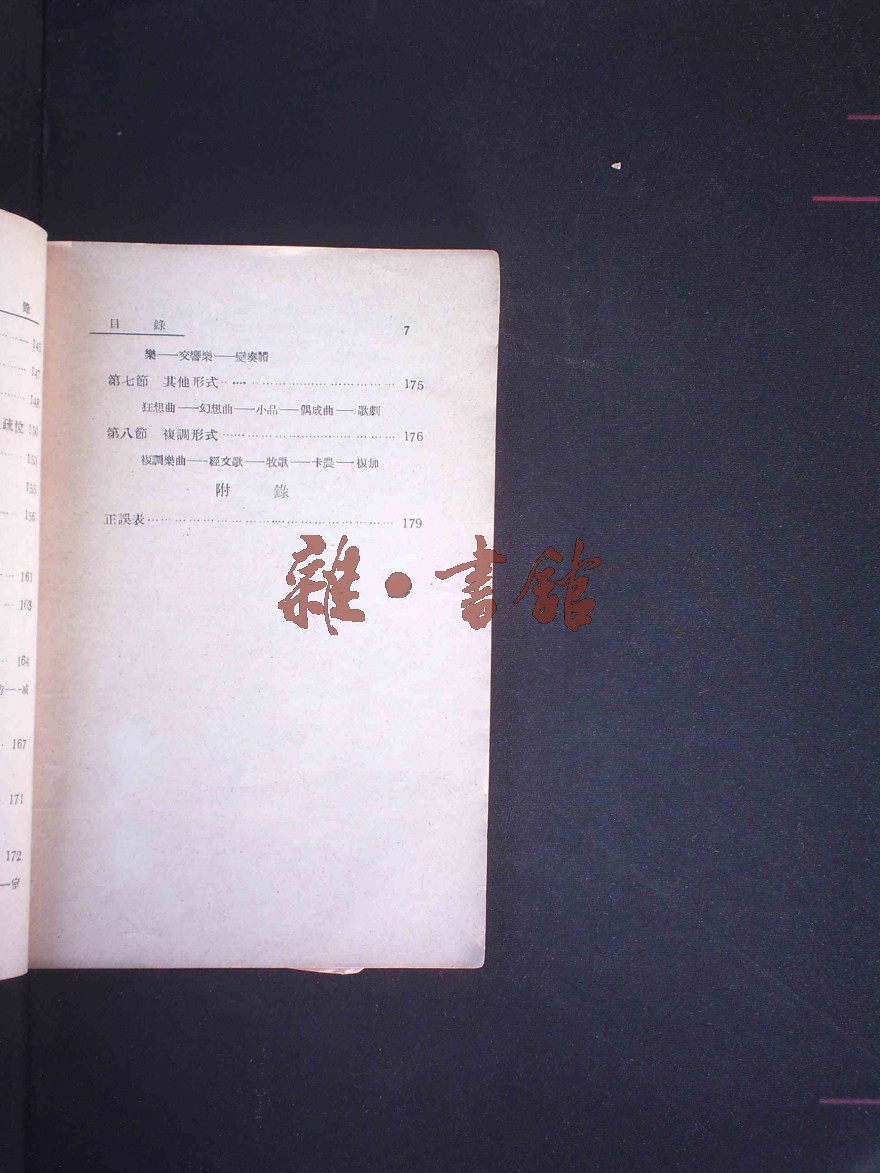 錄
146
147
148
疏位 150
153
155
156
161
163
164
167
171
172
目 錄 7
樂——交響樂——變奏體
第七節 其他形式 175
狂想曲——幻想曲——小品——偶成曲——歌劇
第八節 複調形式 176
複調樂曲——經文歌——牧歌——卡農——複加
附 錄
正誤表 179
雜·書館